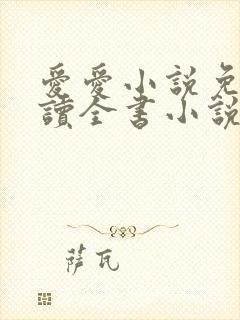 愛愛小說免
讀全書小說
萨瓦